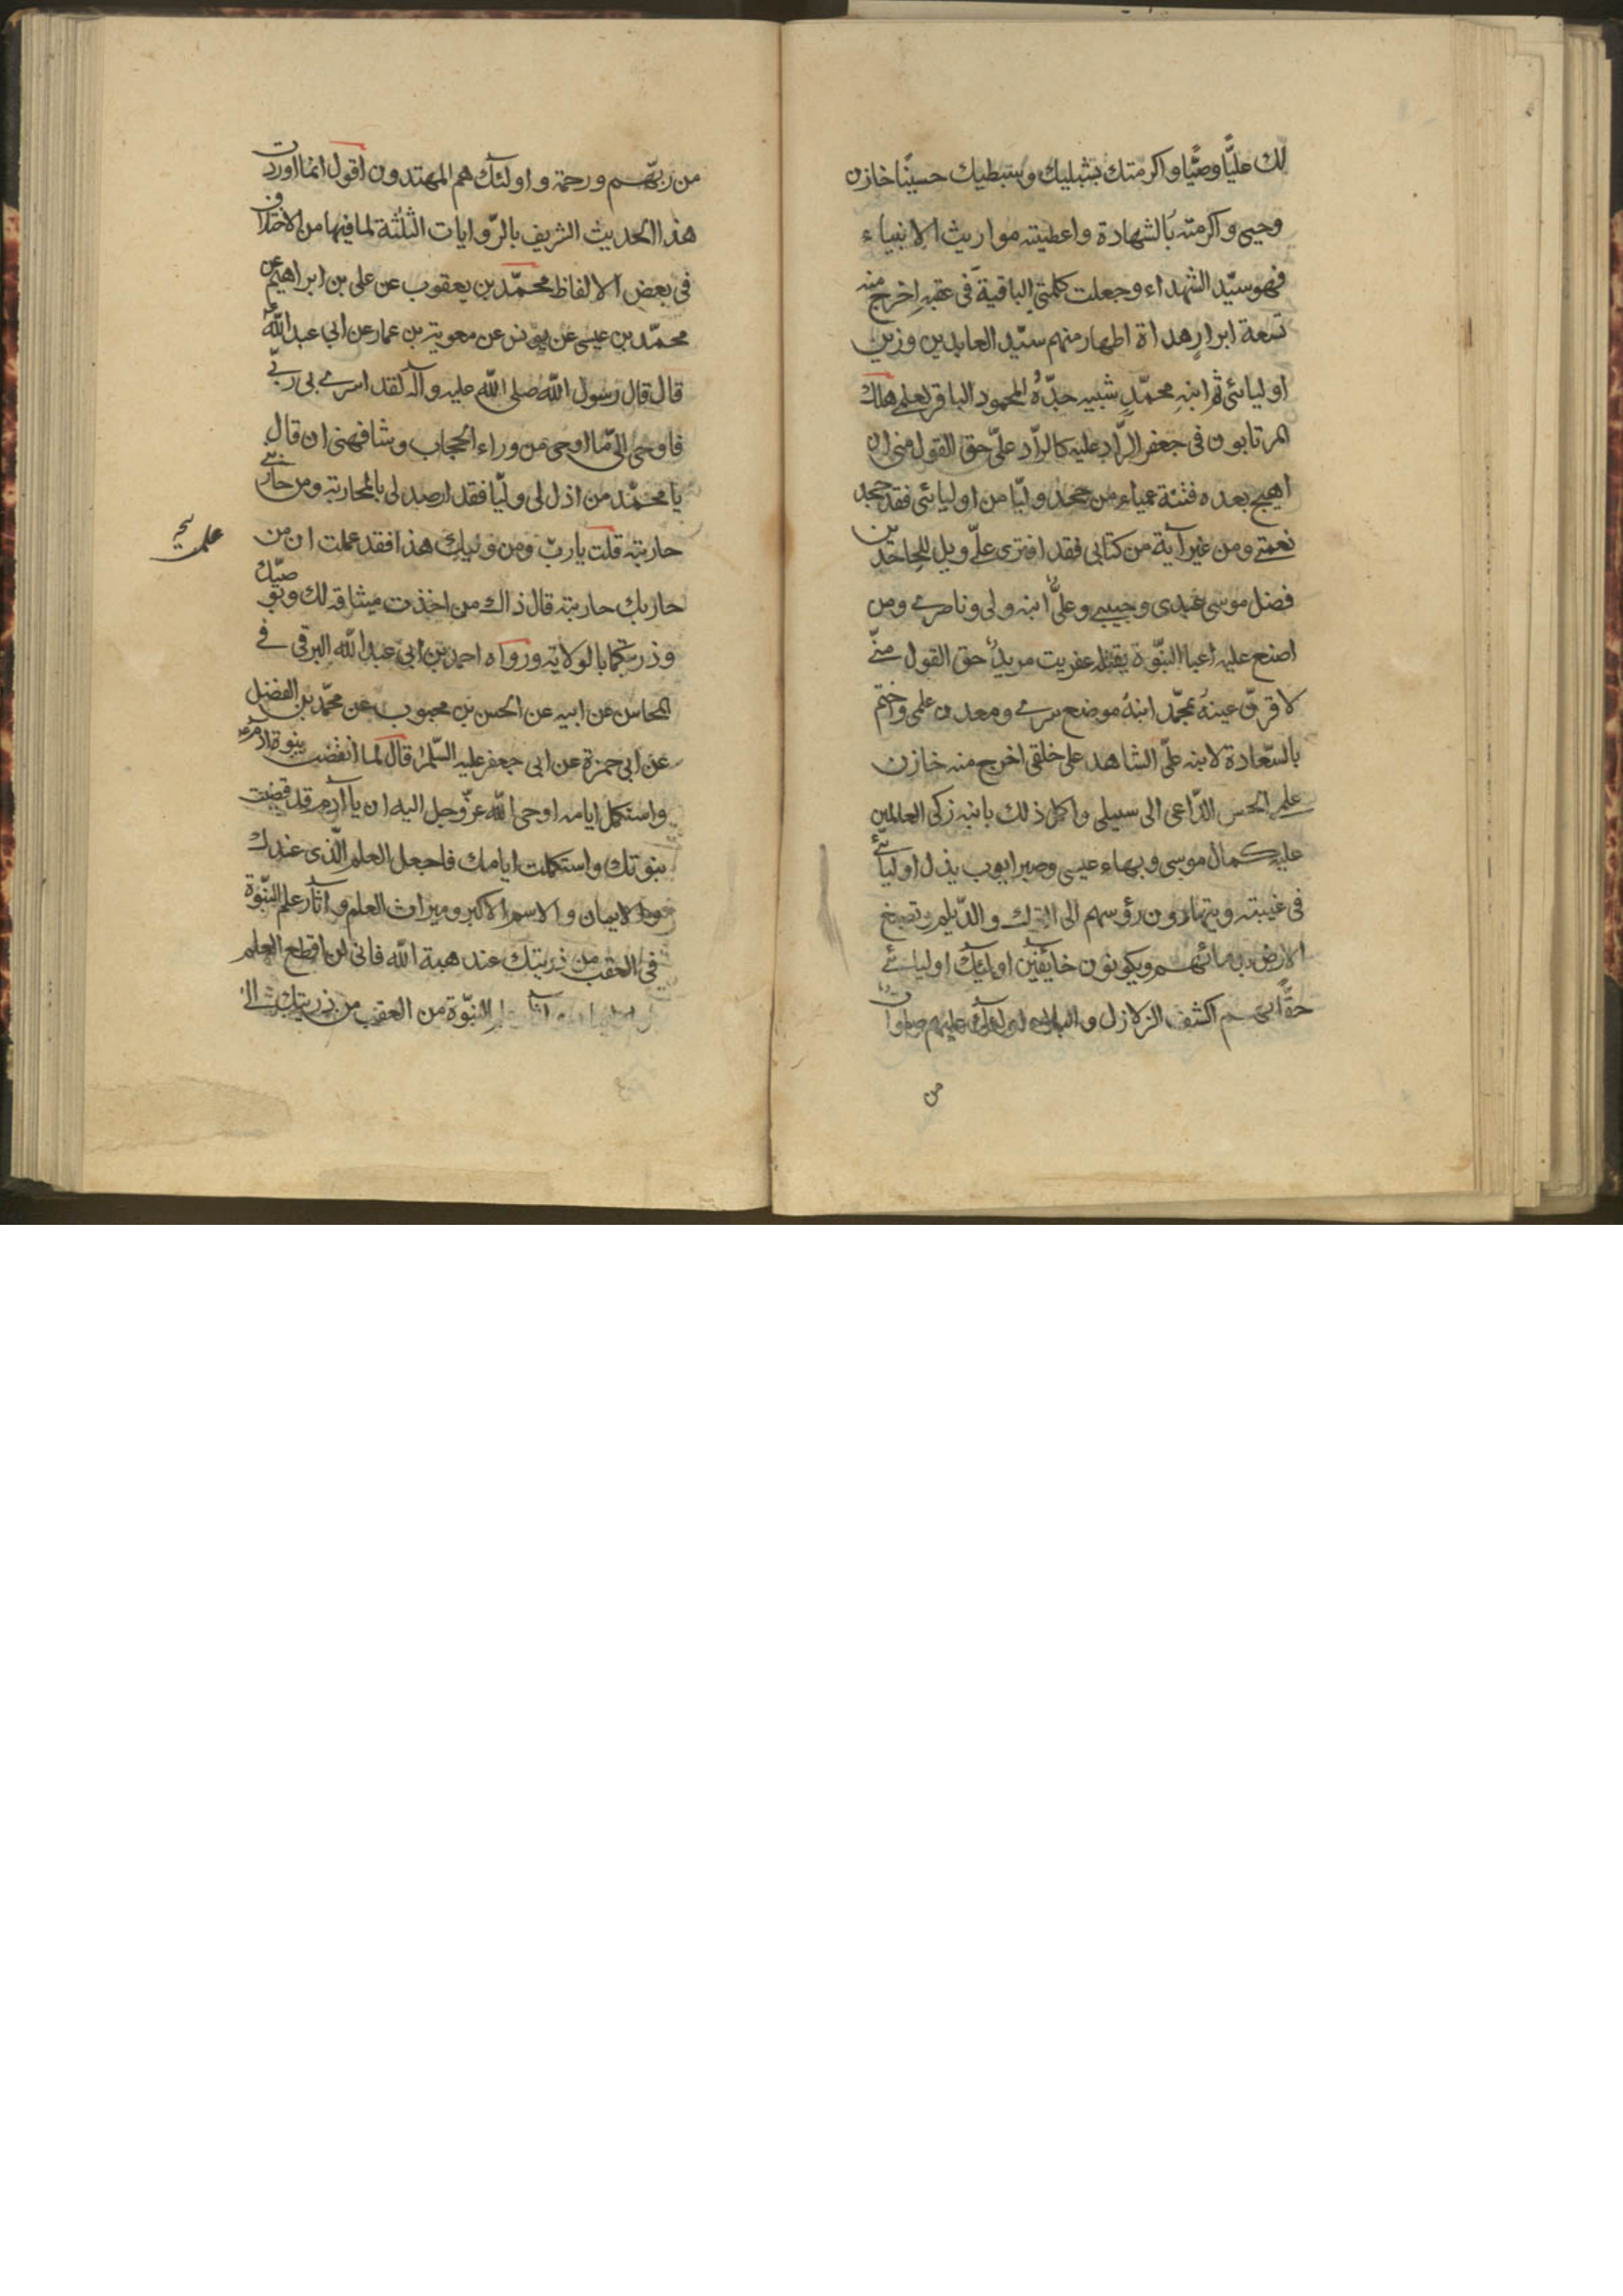 لك عليّا وصيّا واكرمتك بشبليك وسبطيك حسينا خازن
وحيى واكرمته بالشهادة واعطيته مواريث الانبياء
فهو سيّد الشهداء وجعلت كلمتى الباقية فى عقبه اخرج منه
تسعة ابرار هداة اطهار منهم سيّد العابدين وزين
اوليائى ثم ابنه محمّد شبيه جدّه المحمود الباقر لعلمى هلك
المرتابون فى جعفر الرّاد عليه كالرّاد علىّ حق القول منى ان
اهيج بعده فتنة عمياء من جحد وليّا من اوليائى فقد جحد
نعمتى ومن غير آية من كتابى فقد افترى علىّ ويل للجاحدين
فضل موسى عبدى وحبيبى وعلىّ ابنه ولى وناصرى ومن
اضع عليه اعباء النبّوة يقتله عفريت مريد حق القول منّى
لاقرّن عينه بمحمّد ابنه موضع سرى ومعدن علمى واختم
بالسّعادة لابنه علىّ الشاهد على خلقى اخرج منه خازن
علمى الحسن الدّاعى الى سبيلى واكمل ذلك بابنه زكى العالمين
عليه كمال موسى وبهاء عيسى وصبر ايوب يذل اوليائى
فى غيبته ويتهادون رؤسهم الى الترك والدّيلم وتصبغ
الارض بدمائهم ويكونون خائفين اولئك اوليائى
حقّا بهم اكشف الزلازل والبلاء اولئك عليهم صلوات
من
من ربّهم ورحمة واولئك هم المهتدون اقول انما اوردت
هذا الحديث الشريف بالرّوايات الثلثة لما فيها من الاختلاف
فى بعض الالفاظ محمّد بن يعقوب عن على بن ابراهيم عن
محمّد بن عيسى عن يونس عن معوية بن عمار عن ابى عبد اللّه ع
قال قال رسول اللّه صلى اللّه عليه وآله لقد اسرى بى ربّى
فاوحى الىّ ما اوحى من وراء الحجاب وشافهنى ان قال
يا محمّد من اذل لى وليّا فقد ارصد لى بالمحاربة ومن حاربنى
حاربته قلت يا ربّ ومن وليك هذا فقد عملت ان من
علمت
حاربك حاربته قال ذاك من اخذت ميثاقه لك ولوصيّك
وذريتكما بالولاية ورواه احمد بن ابى عبد اللّه البرقى فى
المحاسن عن ابيه عن الحسن بن محبوب عن محمّد بن الفضيل
عن ابى حمزة عن ابى جعفر عليه السّلم قال لما انقضت نبوة آدم
واستكمل ايامه اوحى اللّه عزّ وجل اليه ان يا آدم قد قضيت
نبوتك واستكملت ايامك فاجعل العلم الّذى عندك
والايمان والاسم الاكبر وميراث العلم وآثار علم النبّوة
فى العقب من ذريتك عند هبة اللّه فانى لن اقطع العلم
النبّوة من العقب من ذريتك